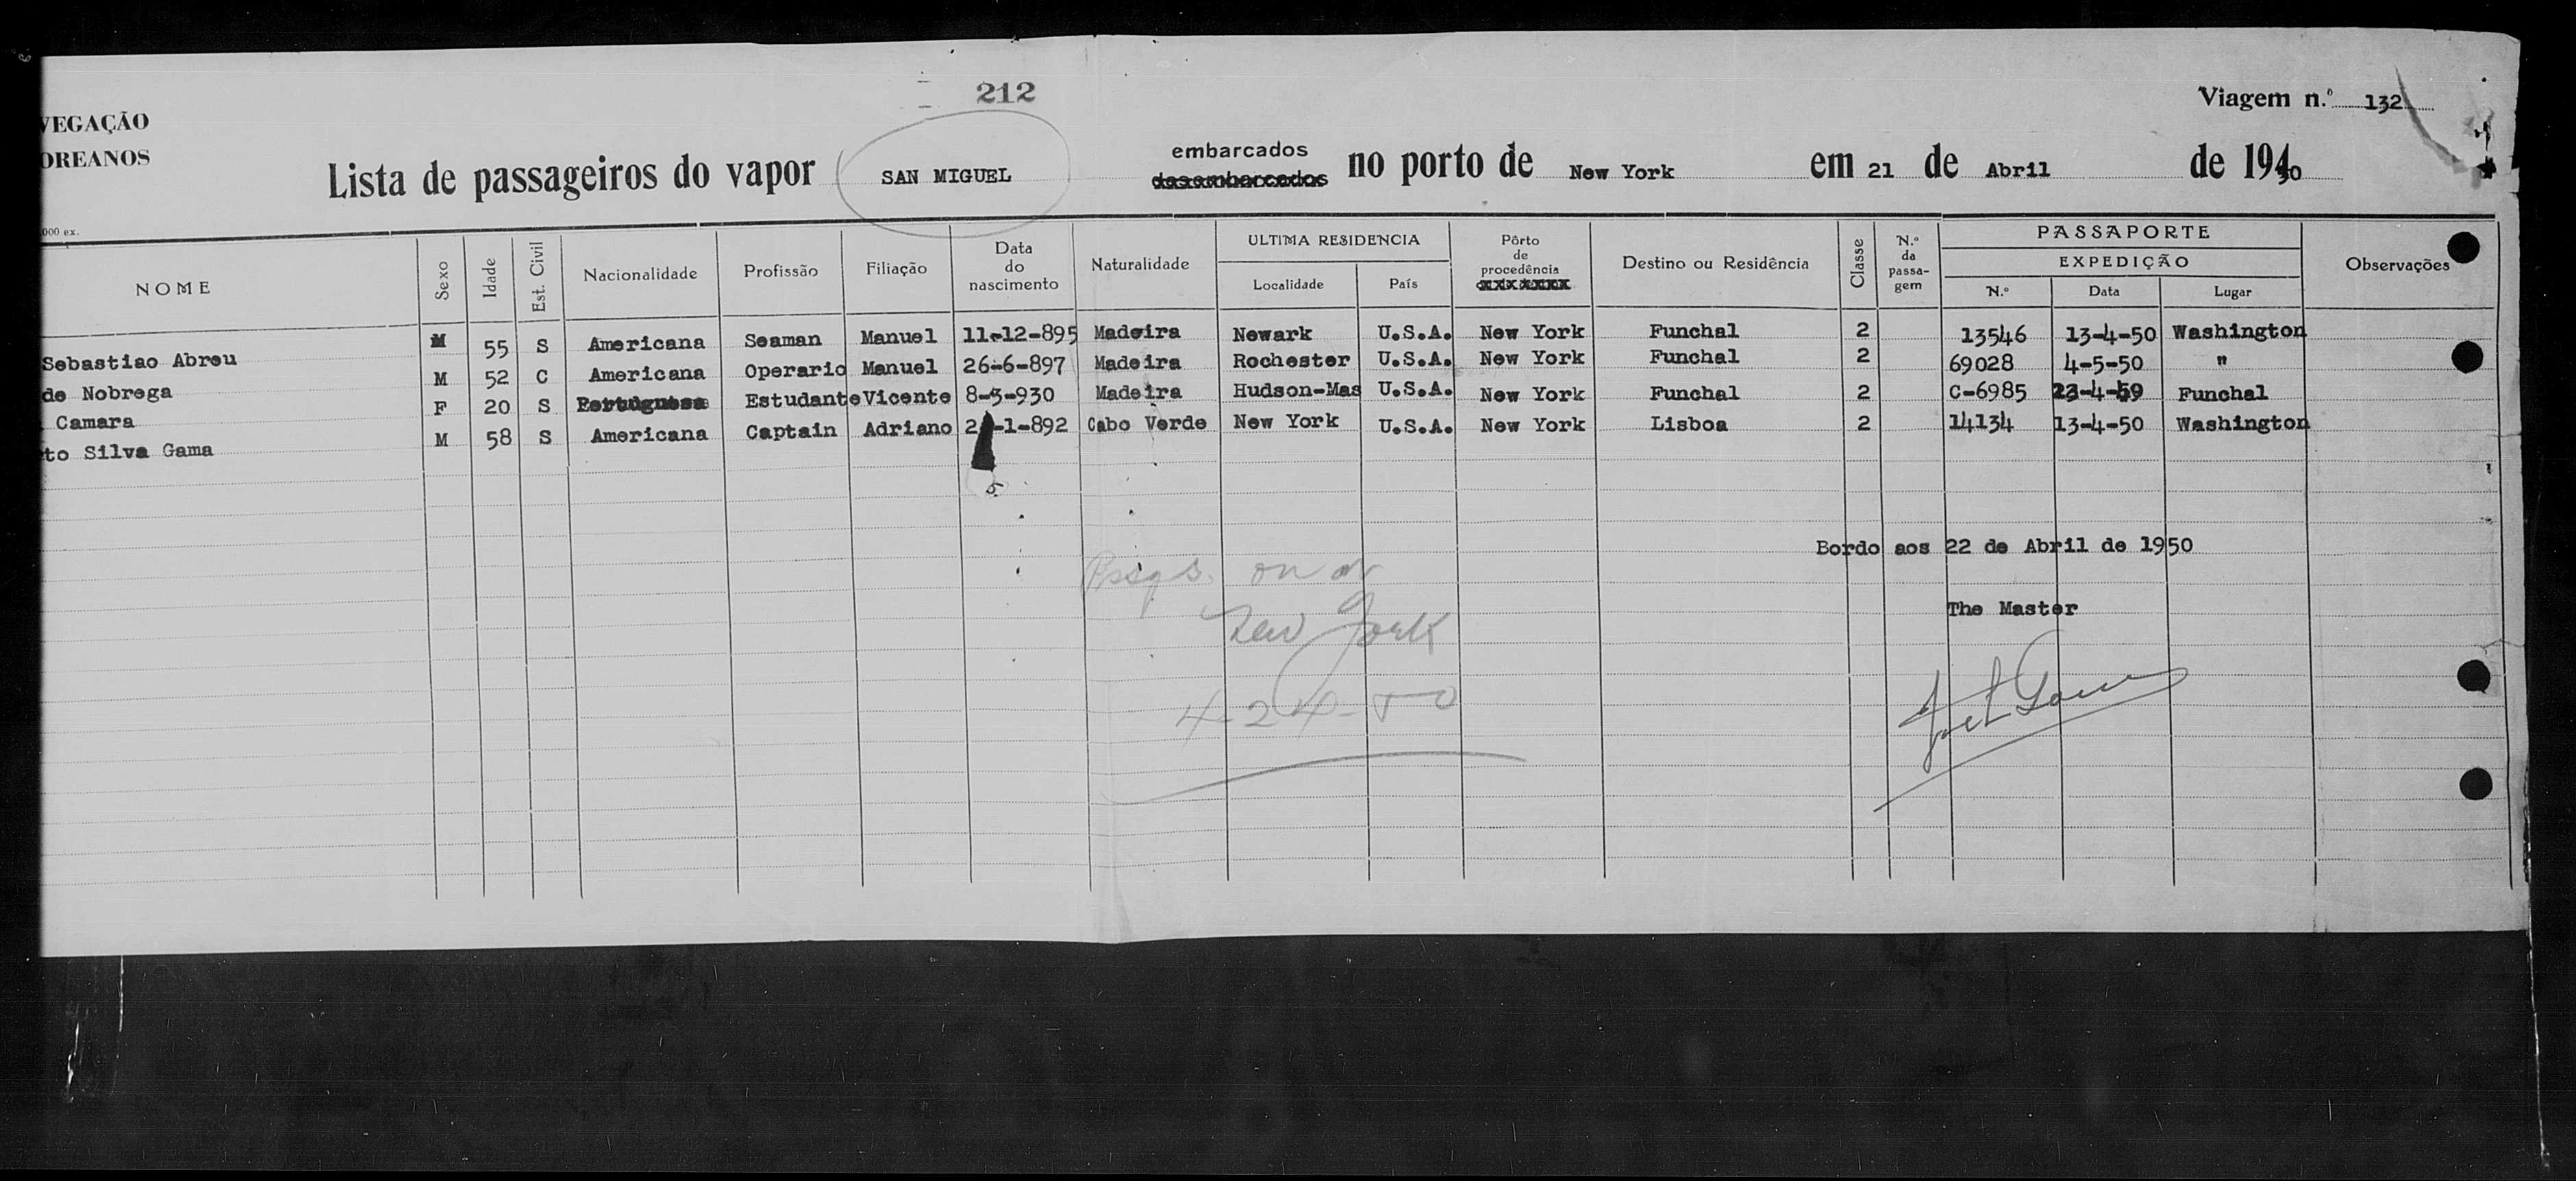 212
Viagem n.º 132
VEGAÇÃO
OREANOS
Lista de passageiros do vapor SAN MIGUEL embarcados desembarcados no porto de New York em 21 de Abril de 1950
000 ex.
NOME Sexo Idade Est. Civil Nacionalidade Profissão Filiação Data do nascimento Naturalidade ULTIMA RESIDENCIA Localidade País Pôrto de procedência Destino ou Residência Classe N.º da passagem PASSAPORTE EXPEDIÇÃO N.º Data Lugar Observações
Sebastiao Abreu M 55 S Americana Seaman Manuel 11-12-895 Madeira Newark U.S.A. New York Funchal 2 13546 13-4-50 Washington
de Nobrega M 52 C Americana Operario Manuel 26-6-897 Madeira Rochester U.S.A. New York Funchal 2 69028 4-5-50 "
Camara F 20 S Portuguesa Estudante Vicente 8-3-930 Madeira Hudson-Mas U.S.A. New York Funchal 2 C-6985 Funchal
to Silva Gama M 58 S Americana Captain Adriano -1-892 Cabo Verde New York U.S.A. New York Lisboa 2 14134 13-4-50 Washington
Bordo aos 22 de Abril de 1950
Pssgs. on at
New York
4-24-50
The Master